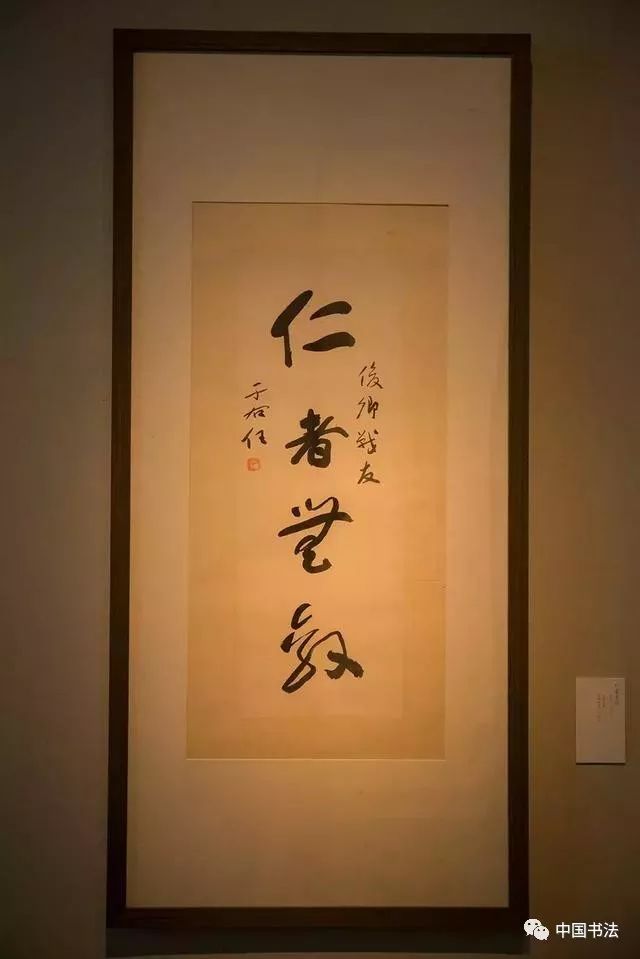 俊卿战友
仁者無敵
于右任
中国书法